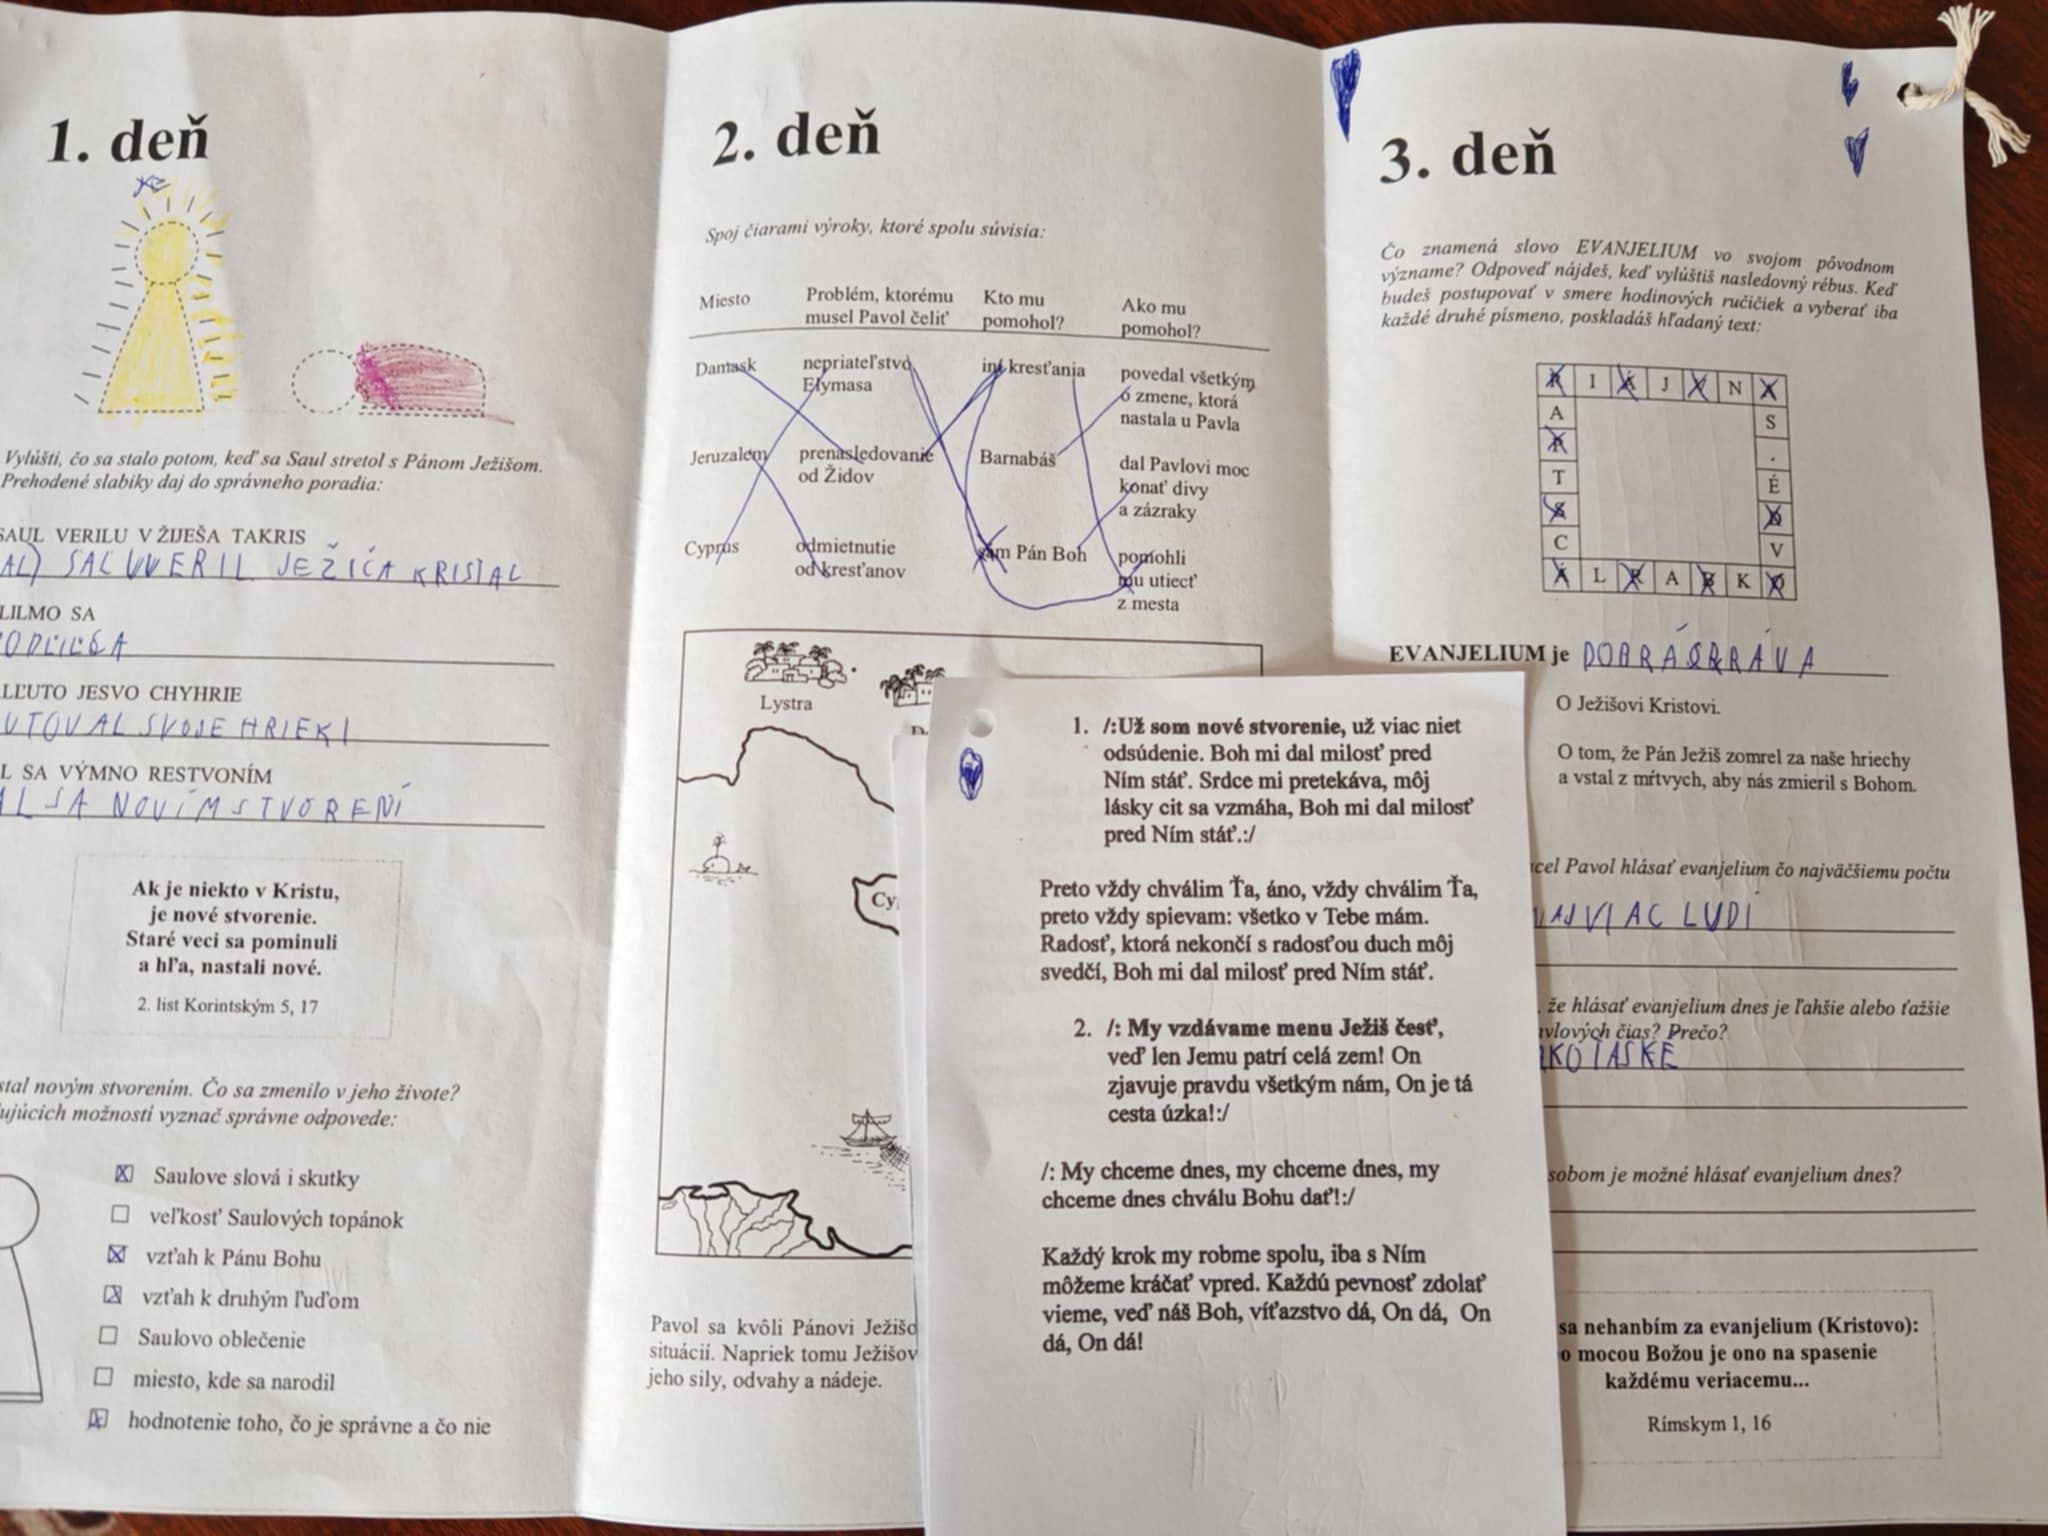 1. deň
Vylúšti, čo sa stalo potom, keď sa Saul stretol s Pánom Ježišom.
Prehodené slabiky daj do správneho poradia:
SAUL VERILU V ŽIJEŠA TAKRIS
SAL UVERIL JEŽIĆA KRISTAL
LILMO SA
LĽUTO JESVO CHYHRIE
UTOVAL SVOJE HRIEKI
L SA VÝMNO RESTVONÍM
AL SA NOVÍM STVORENÍ
Ak je niekto v Kristu,
je nové stvorenie.
Staré veci sa pominuli
a hľa, nastali nové.
2. list Korintským 5, 17
stal novým stvorením. Čo sa zmenilo v jeho živote?
ujúcich možností vyznač správne odpovede:
Saulove slová i skutky
veľkosť Saulových topánok
vzťah k Pánu Bohu
vzťah k druhým ľuďom
Saulovo oblečenie
miesto, kde sa narodil
hodnotenie toho, čo je správne a čo nie
2. deň
Spoj čiarami výroky, ktoré spolu súvisia:
Miesto
Problém, ktorému
musel Pavol čeliť
Kto mu
pomohol?
Ako mu
pomohol?
Damask
nepriateľstvo
Elymasa
iní kresťania
povedal všetkým
o zmene, ktorá
nastala u Pavla
Jeruzalem
prenasledovanie
od Židov
Barnabáš
dal Pavlovi moc
konať divy
a zázraky
Cyprus
odmietnutie
od kresťanov
sám Pán Boh
pomohli
mu utiecť
z mesta
Lystra
Cy
Pavol sa kvôli Pánovi Ježišo
situácií. Napriek tomu Ježišov
jeho sily, odvahy a nádeje.
1. /:Už som nové stvorenie, už viac niet
odsúdenie. Boh mi dal milosť pred
Ním stáť. Srdce mi pretekáva, môj
lásky cit sa vzmáha, Boh mi dal milosť
pred Ním stáť.:/
Preto vždy chválim Ťa, áno, vždy chválim Ťa,
preto vždy spievam: všetko v Tebe mám.
Radosť, ktorá nekončí s radosťou duch môj
svedčí, Boh mi dal milosť pred Ním stáť.
2. /: My vzdávame menu Ježiš česť,
veď len Jemu patrí celá zem! On
zjavuje pravdu všetkým nám, On je tá
cesta úzka!:/
/: My chceme dnes, my chceme dnes, my
chceme dnes chválu Bohu dať!:/
Každý krok my robme spolu, iba s Ním
môžeme kráčať vpred. Každú pevnosť zdolať
vieme, veď náš Boh, víťazstvo dá, On dá, On
dá, On dá!
3. deň
Čo znamená slovo EVANJELIUM vo svojom pôvodnom
význame? Odpoveď nájdeš, keď vylúštiš nasledovný rébus. Keď
budeš postupovať v smere hodinových ručičiek a vyberať iba
každé druhé písmeno, poskladáš hľadaný text:
I J N
A S
.
T É
C V
L A K
EVANJELIUM je DOBRÁ SPRÁVA
O Ježišovi Kristovi.
O tom, že Pán Ježiš zomrel za naše hriechy
a vstal z mŕtvych, aby nás zmieril s Bohom.
cel Pavol hlásať evanjelium čo najväčšiemu počtu
NAJVIAC LUDÍ
že hlásať evanjelium dnes je ľahšie alebo ťažšie
avlových čias? Prečo?
sobom je možné hlásať evanjelium dnes?
sa nehanbím za evanjelium (Kristovo):
o mocou Božou je ono na spasenie
každému veriacemu...
Rímskym 1, 16